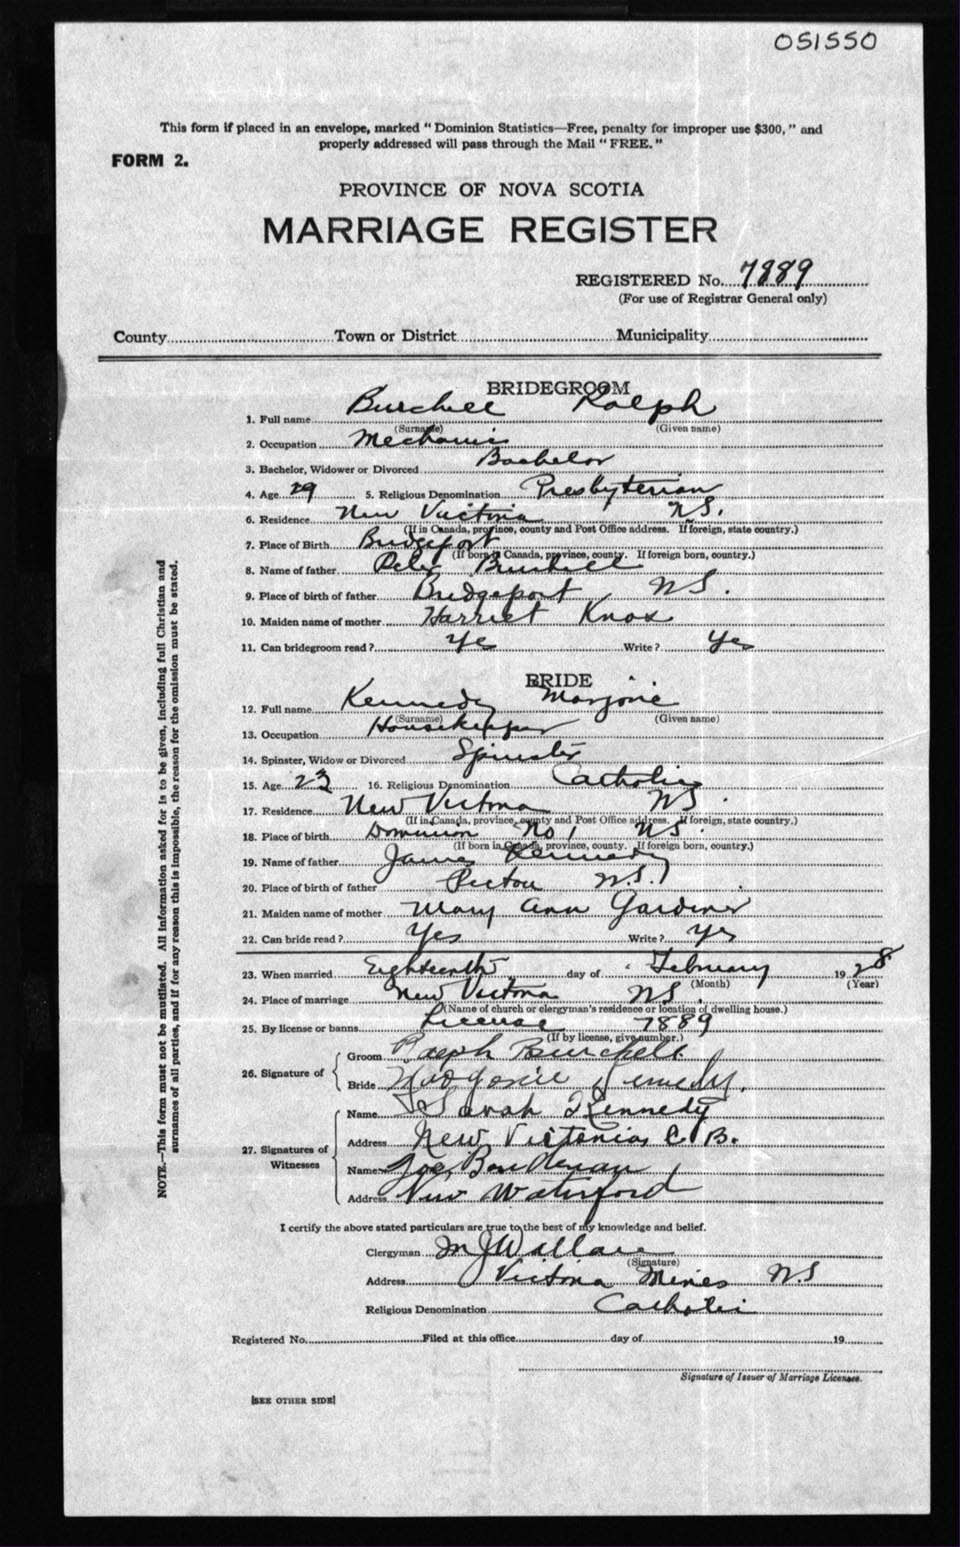 051550
This form if placed in an envelope, marked " Dominion Statistics—Free, penalty for improper use $300, " and
properly addressed will pass through the Mail " FREE. "
FORM 2.
PROVINCE OF NOVA SCOTIA
MARRIAGE REGISTER
REGISTERED No. 7889
(For use of Registrar General only)
County Town or District Municipality
BRIDEGROOM
1. Full name Burchell Ralph
(Surname) (Given name)
2. Occupation Mechanic
3. Bachelor, Widower or Divorced Bachelor
4. Age 29 5. Religious Denomination Presbyterian
6. Residence New Victoria N.S.
(If in Canada, province, county and Post Office address. If foreign, state country.)
7. Place of Birth Bridgeport
(If born in Canada, province, county. If foreign born, country.)
8. Name of father Peter Burchell
9. Place of birth of father Bridgeport N.S.
10. Maiden name of mother Harriet Knox
11. Can bridegroom read? Yes Write? Yes
BRIDE
12. Full name Kennedy Marjorie
(Surname) (Given name)
13. Occupation Housekeeper
14. Spinster, Widow or Divorced Spinster
15. Age 23 16. Religious Denomination Catholic
17. Residence New Victoria N.S.
(If in Canada, province, county and Post Office address. If foreign, state country.)
18. Place of birth Dominion No 1 N.S.
(If born in Canada, province, county. If foreign born, country.)
19. Name of father James Kennedy
20. Place of birth of father Pictou N.S.
21. Maiden name of mother Mary Ann Gardiner
22. Can bride read? Yes Write? Yes
23. When married Eighteenth day of February 1928
(Month) (Year)
24. Place of marriage New Victoria N.S.
(Name of church or clergyman's residence or location of dwelling house.)
25. By license or banns License 7889
(If by license, give number.)
26. Signature of Groom Ralph Burchell
Bride Marjorie Kennedy.
27. Signatures of Witnesses Name Sarah Kennedy
Address New Victoria, C. B.
Name Joe
Address New Waterford
I certify the above stated particulars are true to the best of my knowledge and belief.
Clergyman M J Wallace
(Signature)
Address Victoria Mines N.S
Religious Denomination Catholic
Registered No. Filed at this office day of 19
Signature of Issuer of Marriage Licenses.
[SEE OTHER SIDE]
NOTE.—This form must not be mutilated. All information asked for is to be given, including full Christian and
surnames of all parties, and if for any reason this is impossible, the reason for the omission must be stated.